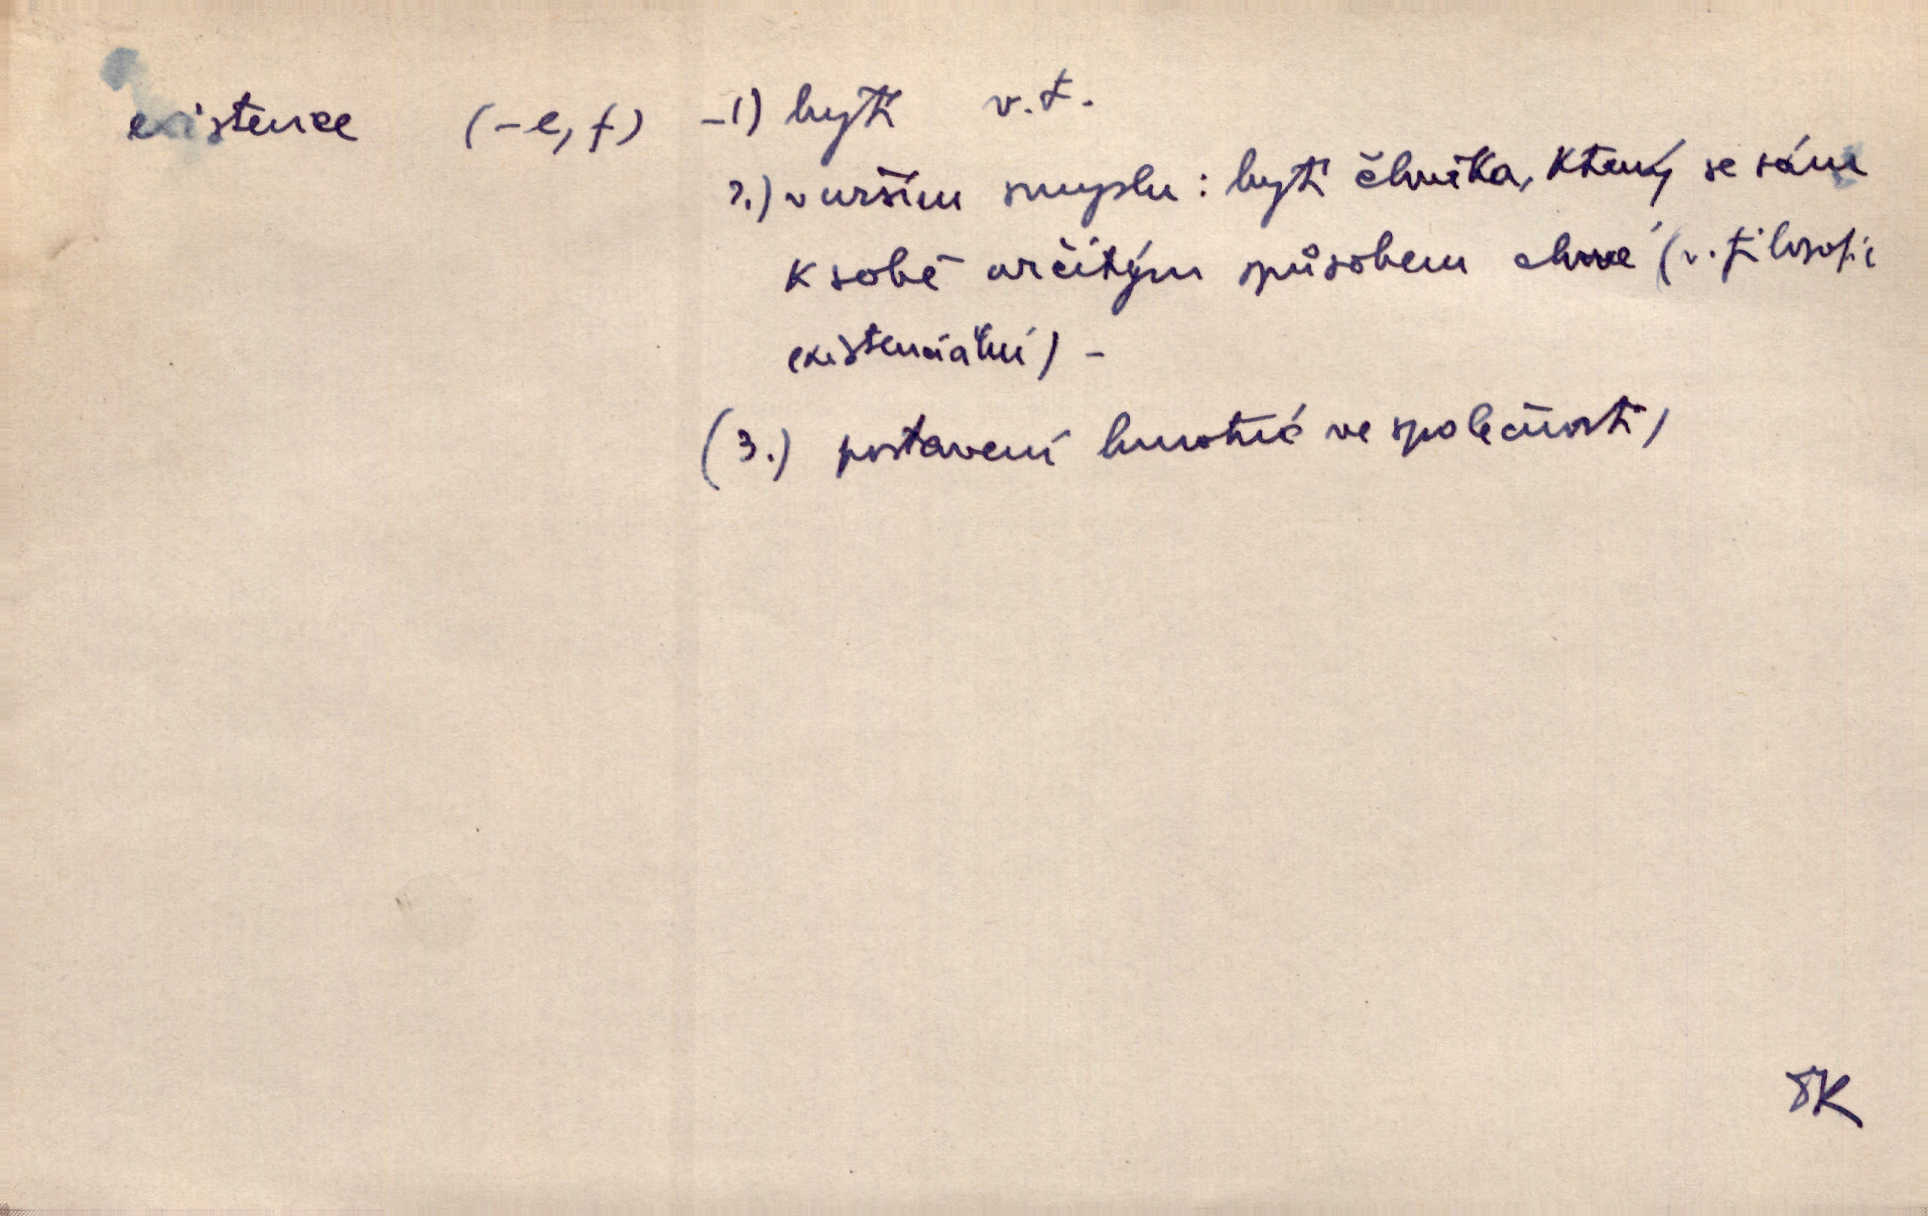 existence (-e, f) -1) bytí v.t.
2.) v užším smyslu : bytí člověka, který se sám
k sobě určitým způsobem chová (v. filosofie
existenciální) -
(3.) postavení hmotné ve společnosti)
JK